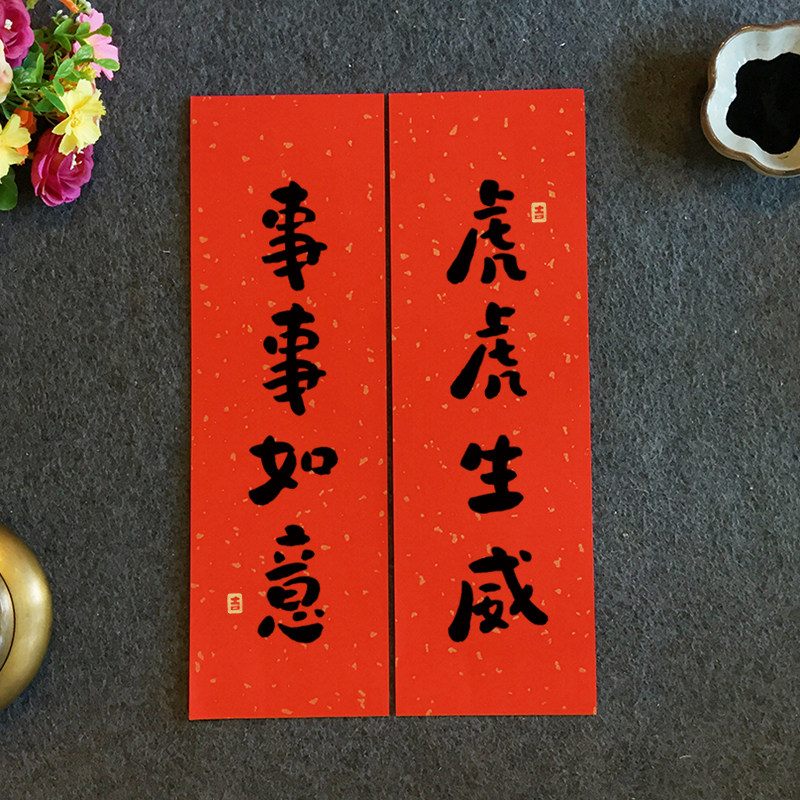 虎虎生威
吉
事事如意
吉